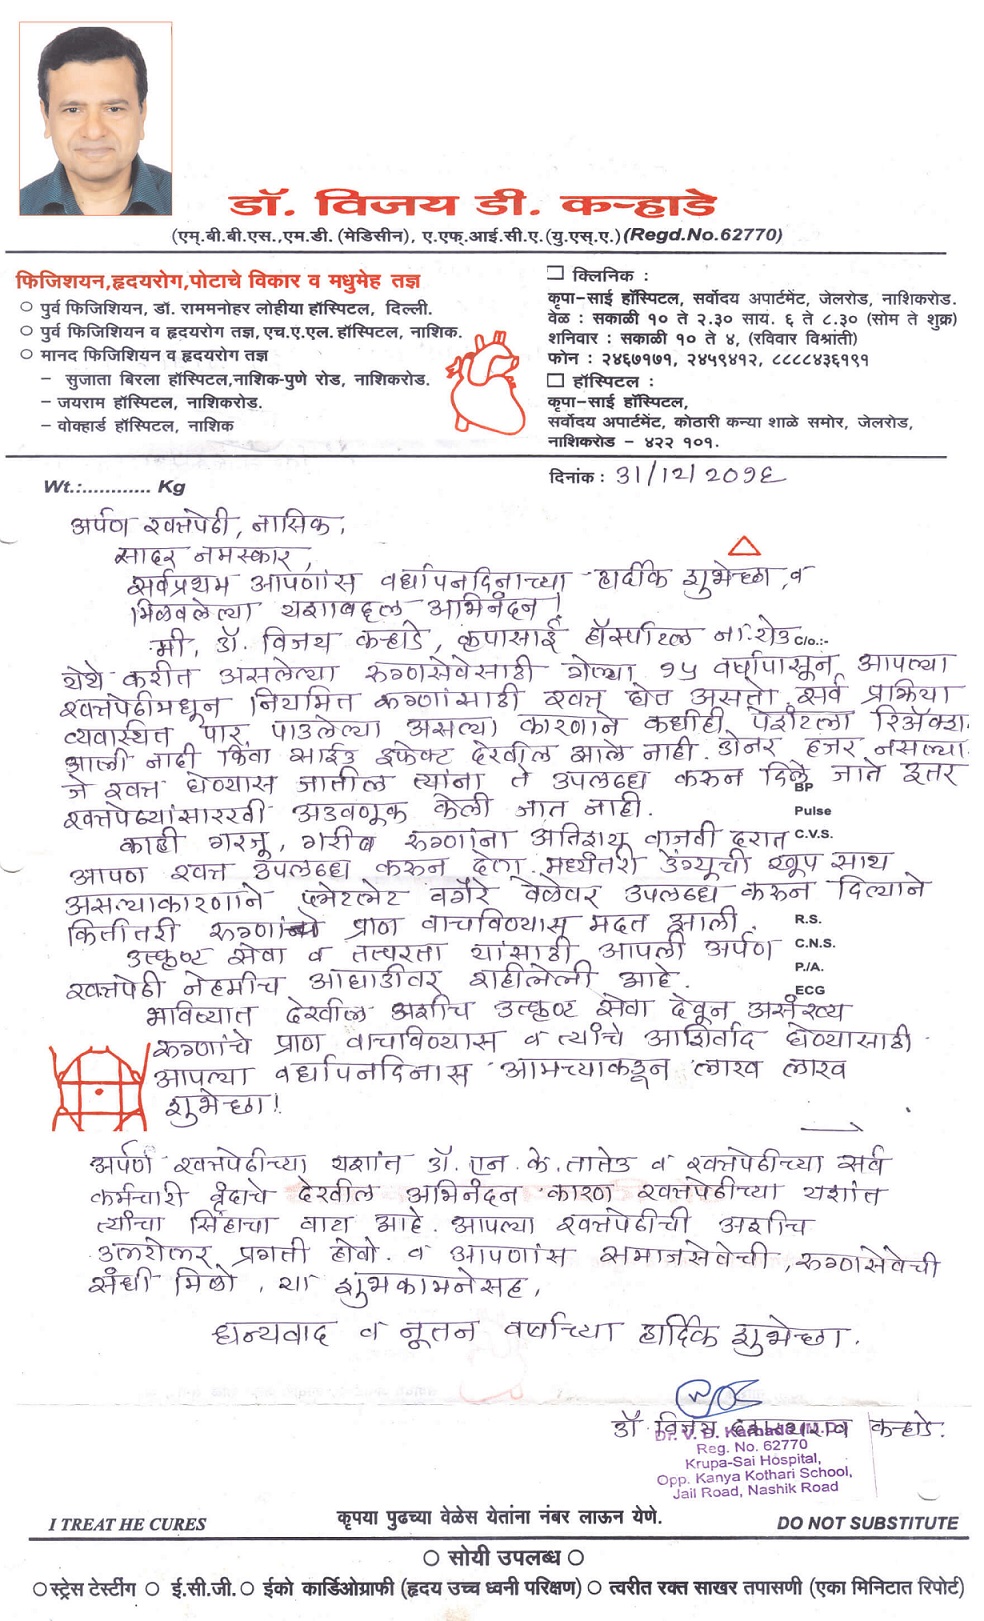 डॉ. विजय डी. कऱ्हाडे
(एम्.बी.बी.एस.,एम.डी. (मेडिसीन), ए.एफ्.आई.सी.ए.(यु.एस्.ए.) (Regd.No.62770)
फिजिशयन,हृदयरोग,पोटाचे विकार व मधुमेह तज्ञ
○ पुर्व फिजिशियन, डॉ. राममनोहर लोहीया हॉस्पिटल, दिल्ली.
○ पुर्व फिजिशियन व हृदयरोग तज्ञ, एच.ए.एल. हॉस्पिटल, नाशिक.
○ मानद फिजिशियन व हृदयरोग तज्ञ
– सुजाता बिरला हॉस्पिटल,नाशिक-पुणे रोड, नाशिकरोड.
– जयराम हॉस्पिटल, नाशिकरोड.
– वोक्हार्ड हॉस्पिटल, नाशिक
क्लिनिक :
कृपा-साई हॉस्पिटल, सर्वोदय अपार्टमेंट, जेलरोड, नाशिकरोड.
वेळ : सकाळी १० ते २.३० सायं. ६ ते ८.३० (सोम ते शुक्र)
शनिवार : सकाळी १० ते ४, (रविवार विश्रांती)
फोन : २४६७१७१, २४५९४१२, ८८८८४३६१९१
हॉस्पिटल :
कृपा-साई हॉस्पिटल,
सर्वोदय अपार्टमेंट, कोठारी कन्या शाळे समोर, जेलरोड,
नाशिकरोड – ४२२ १०१.
दिनांक : 31/12/२०१६
Wt.:............ Kg
अर्पण रक्तपेढी, नासिक,
सादर नमस्कार,
सर्वप्रथम आपणांस वर्धापनदिनाच्या हार्दीक शुभेच्छा, व
मिळवलेल्या यशाबद्दल अभिनंदन!
मी, डॉ. विजय कऱ्हाडे, कृपासाई हॉस्पिटल ना.रोड C/o.:-
येथे करीत असलेल्या रुग्णसेवेसाठी गेल्या १५ वर्षापासून आपल्या
रक्तपेढीमधून नियमित रुग्णांसाठी रक्त घेत असतो. सर्व प्रक्रिया
व्यवास्थित पार पाडलेल्या असल्या कारणाने कधीही पेशंटला रिॲक्शन
आली नाही किंवा साईड इफेक्ट देखील झाले नाही. डोनर हजर नसल्यास
जे रक्त घेण्यास जातील त्यांना ते उपलब्ध करुन दिले जाते इतर
BP
रक्तपेढ्यांसारखी अडवणूक केली जात नाही.
Pulse
काही गरजू, गरीब रुग्णांना अतिशय वाजवी दरात C.V.S.
आपण रक्त उपलब्ध करुन देता. मध्यंतरी डेंग्यूची खूप साथ
असल्याकारणाने प्लेटलेट वगैरे वेळेवर उपलब्ध करुन दिल्याने
कितीतरी रुग्णांचे प्राण वाचविण्यास मदत झाली. R.S.
उत्कृष्ट सेवा व तत्परता यांसाठी आपली अर्पण C.N.S.
रक्तपेढी नेहमीच आघाडीवर राहीलेली आहे. P./A.
ECG
भविष्यात देखील अशीच उत्कृष्ट सेवा देवून असंख्य
रुग्णांचे प्राण वाचविण्यास व त्यांचे आशिर्वाद घेण्यासाठी
आपल्या वर्धापनदिनास आमच्याकडून लाख लाख
शुभेच्छा!
अर्पण रक्तपेढीच्या यशांत डॉ. एन. के. तातेड व रक्तपेढीच्या सर्व
कर्मचारी वृंदाचे देखील अभिनंदन कारण रक्तपेढीच्या यशांत
त्यांचा सिंहाचा वाटा आहे. आपल्या रक्तपेढीची अशीच
उत्तरोत्तर प्रगती होवो. व आपणांस समाजसेवेची, रुग्णसेवेची
संधी मिळो, या शुभकामनेसह,
धन्यवाद व नूतन वर्षाच्या हार्दिक शुभेच्छा.
डॉ विजय कऱ्हाडे.
Dr. V. D. Karhade
Reg. No. 62770
Krupa-Sai Hospital,
Opp. Kanya Kothari School,
Jail Road, Nashik Road
I TREAT HE CURES
कृपया पुढच्या वेळेस येतांना नंबर लाऊन येणे.
DO NOT SUBSTITUTE
○ सोयी उपलब्ध ○
○ स्ट्रेस टेस्टींग ○ ई.सी.जी. ○ ईको कार्डिओग्राफी (हृदय उच्च ध्वनी परिक्षण) ○ त्वरीत रक्त साखर तपासणी (एका मिनिटात रिपोर्ट)